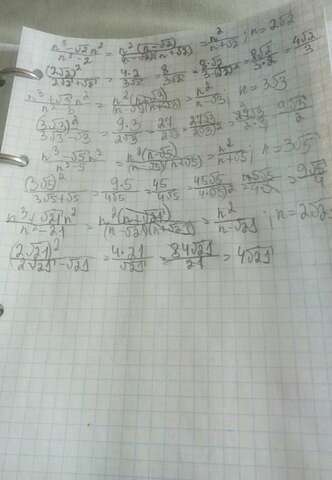 n³-√2 n²/n²-2 = n²(n-√2)/(n-√2)(n+√2) = n²/n+√2; n=2√2
(2√2)²/2√2+√2 = 4·2/3√2 = 8/3√2 = 8·√2/3·(√2)² = 8√2/3·2 = 4√2/3
n³+√3 n²/n²-3 = n²(n+√3)/(n-√3)(n+√3) = n²/n-√3; n=3√3
(3√3)²/3√3-√3 = 9·3/2√3 = 27/2√3 = 27√3/2(√3)² = 27√3/2·3 = 9√3/2
n³-√5 n²/n²-5 = n²(n-√5)/(n-√5)(n+√5) = n²/n+√5; n=3√5
(3√5)²/3√5+√5 = 9·5/4√5 = 45/4√5 = 45√5/4(√5)² = 45√5/4·5 = 9√5/4
n³+√21 n²/n²-21 = n²(n+√21)/(n-√21)(n+√21) = n²/n-√21; n=2√2
(2√21)²/2√21-√21 = 4·21/√21 = 84√21/21 = 4√21